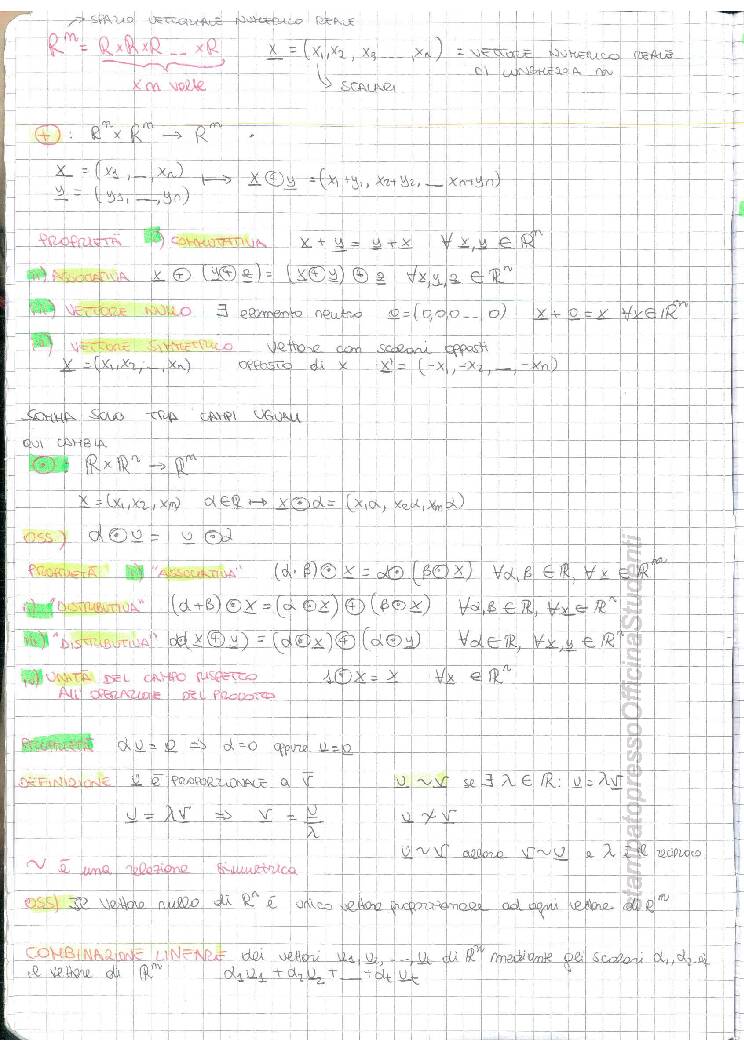 → SPAZIO VETTORIALE NUMERICO REALE
ℝⁿ = ℝ×ℝ×ℝ ... ×ℝ x = (x₁, x₂, x₃ ..., xₙ) = VETTORE NUMERICO REALE
x n volte ↳ SCALARI DI LUNGHEZZA n
⊕ : ℝⁿ × ℝⁿ → ℝⁿ
x = (x₁, _, xₙ) ⟼ x ⊕ y = (x₁+y₁, x₂+y₂, _ xₙ+yₙ)
y = (y₁, _, yₙ)
PROPRIETÀ i) COMMUTATIVA x + y = y + x ∀ x, y ∈ ℝⁿ
ii) ASSOCIATIVA x ⊕ (y ⊕ z) = (x ⊕ y) ⊕ z ∀x, y, z ∈ ℝⁿ
iii) VETTORE NULLO ∃ elemento neutro 0 = (0,0,0 ... 0) x + 0 = x ∀x ∈ ℝⁿ
iv) VETTORE SIMMETRICO vettore con scalari opposti
x = (x₁, x₂, ..., xₙ) OPPOSTO di x x' = (-x₁, -x₂, _, -xₙ)
SOMMA SOLO TRA CAMPI UGUALI
QUI CAMBIA
⊙ : ℝ × ℝⁿ → ℝⁿ
x = (x₁, x₂, xₙ) α ∈ ℝ ↦ x ⊙ α = (x₁α, x₂α, xₙα)
OSS.) α ⊙ u = u ⊙ α
PROPRIETÀ i) "ASSOCIATIVA" (α·β) ⊙ x = α ⊙ (β ⊙ x) ∀α, β ∈ ℝ, ∀ x ∈ ℝⁿ
ii) "DISTRIBUTIVA" (α+β) ⊙ x = (α ⊙ x) ⊕ (β ⊙ x) ∀α, β ∈ ℝ, ∀x ∈ ℝⁿ
iii) "DISTRIBUTIVA" α(x ⊕ y) = (α ⊙ x) ⊕ (α ⊙ y) ∀α ∈ ℝ, ∀x, y ∈ ℝⁿ
iv) UNITÀ DEL CAMPO RISPETTO 1 ⊙ x = x ∀x ∈ ℝⁿ
ALL'OPERAZIONE DEL PRODOTTO
PROPRIETÀ αu = 0 ⇒ α = 0 oppure u = 0
DEFINIZIONE u è PROPORZIONALE a v u ~ v se ∃ λ ∈ ℝ : u = λv
u = λv ⇒ v = u/λ u ≁ v
u ~ v allora v ~ u e λ è il reciproco
~ è una relazione simmetrica
OSS) Il vettore nullo di ℝⁿ è unico vettore proporzionale ad ogni vettore di ℝⁿ
COMBINAZIONE LINEARE dei vettori u₁, u₂, ..., uₜ di ℝⁿ mediante gli scalari α₁, α₂
è vettore di ℝⁿ α₁u₁ + α₂u₂ + _ + αₜuₜ
stampatopressoOfficinaStudenti